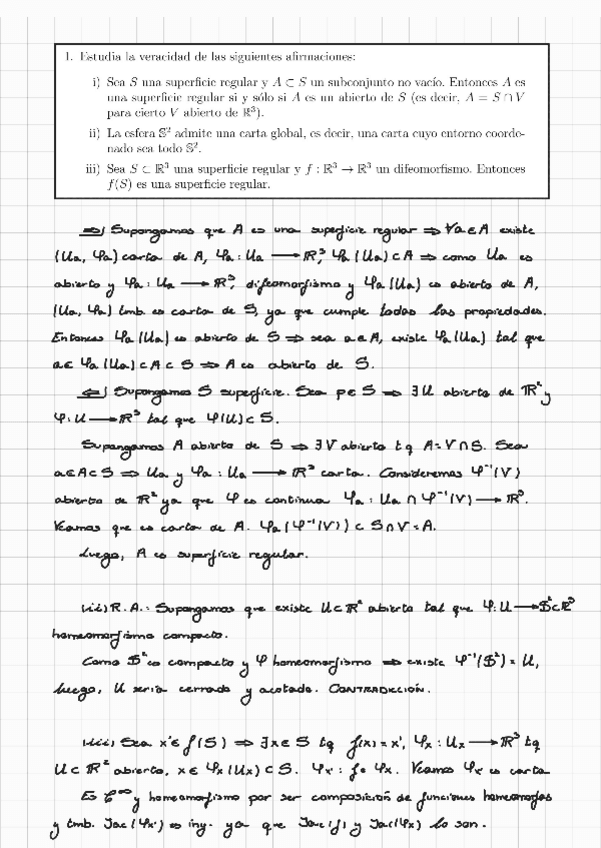 1. Estudia la veracidad de las siguientes afirmaciones:
i) Sea S una superficie regular y A ⊂ S un subconjunto no vacío. Entonces A es
una superficie regular si y sólo si A es un abierto de S (es decir, A = S ∩ V
para cierto V abierto de ℝ³).
ii) La esfera 𝕊² admite una carta global, es decir, una carta cuyo entorno coorde-
nado sea todo 𝕊².
iii) Sea S ⊂ ℝ³ una superficie regular y f : ℝ³ → ℝ³ un difeomorfismo. Entonces
f(S) es una superficie regular.
⇒) Supongamos que A es una superficie regular ⇒ ∀a∈A existe
(Ua, φa) carta de A, φa : Ua → ℝ³, φa(Ua) ⊂ A ⇒ como Ua es
abierto y φa : Ua → ℝ³, difeomorfismo y φa(Ua) es abierto de A,
(Ua, φa) tmb. es carta de S, ya que cumple todas las propiedades.
Entonces φa(Ua) es abierto de S ⇒ sea a∈A, existe φa(Ua) tal que
a∈ φa(Ua) ⊂ A ⊂ S ⇒ A es abierto de S.
⇐) Supongamos S superficie. Sea p∈S ⇒ ∃U abierto de ℝ² y
φ: U → ℝ³ tal que φ(U) ⊂ S.
Supongamos A abierto de S ⇒ ∃V abierto tq A = V∩S. Sea
a∈A⊂S ⇒ Ua y φa : Ua → ℝ³ carta. Consideremos φ⁻¹(V)
abierto de ℝ² ya que φ es continua φa : Ua ∩ φ⁻¹(V) → ℝ³.
Veamos que es carta de A. φa(φ⁻¹(V)) ⊂ S∩V = A.
Luego, A es superficie regular.
ii) R.A.: Supongamos que existe U⊂ℝ² abierto tal que φ: U → 𝕊²⊂ℝ³
homeomorfismo compacto.
Como 𝕊² es compacto y φ homeomorfismo ⇒ existe φ⁻¹(𝕊²) = U,
luego, U sería cerrado y acotado. CONTRADICCIÓN.
iii) Sea x'∈ f(S) ⇒ ∃x∈S tq f(x) = x', φx : Ux → ℝ³ tq
U ⊂ ℝ² abierto, x∈ φx(Ux) ⊂ S. φx' : f∘φx. Veamos φx' es carta
Es C^∞ y homeomorfismo por ser composición de funciones homeomorfas
y tmb. Jac(φx') es iny. ya que Jac(f) y Jac(φx) lo son.